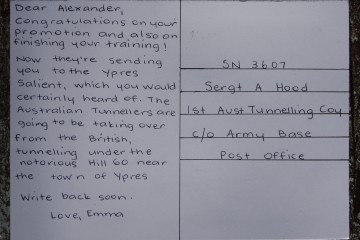 Dear Alexander,
Congratulations on your
promotion and also on
finishing your training!
Now they're sending
you to the Ypres
Salient, which you would
certainly heard of. The
Australian Tunnellers are
going to be taking over
from the British,
tunnelling under the
notorious Hill 60 near
the town of Ypres
Write back soon.
Love, Emma
SN 3607
Sergt A Hood
1st Aust Tunnelling Coy
c/o Army Base
Post Office